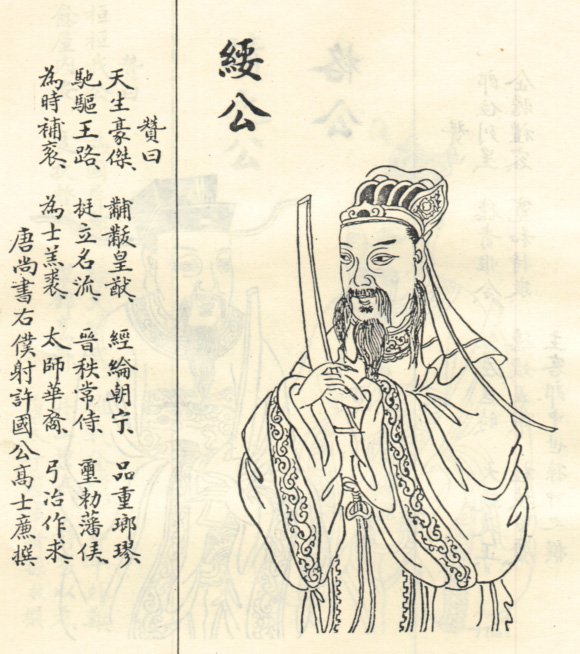 綏公
贊曰
天生豪傑、黼黻皇猷、經綸朝宁、品重瑯璆、
馳驅王路、挺立名流、晉秩常侍、璽勅藩侯、
為時補袞、為士羔裘、太師華裔、弓冶作求、
唐尚書右僕射許國公高士廉撰